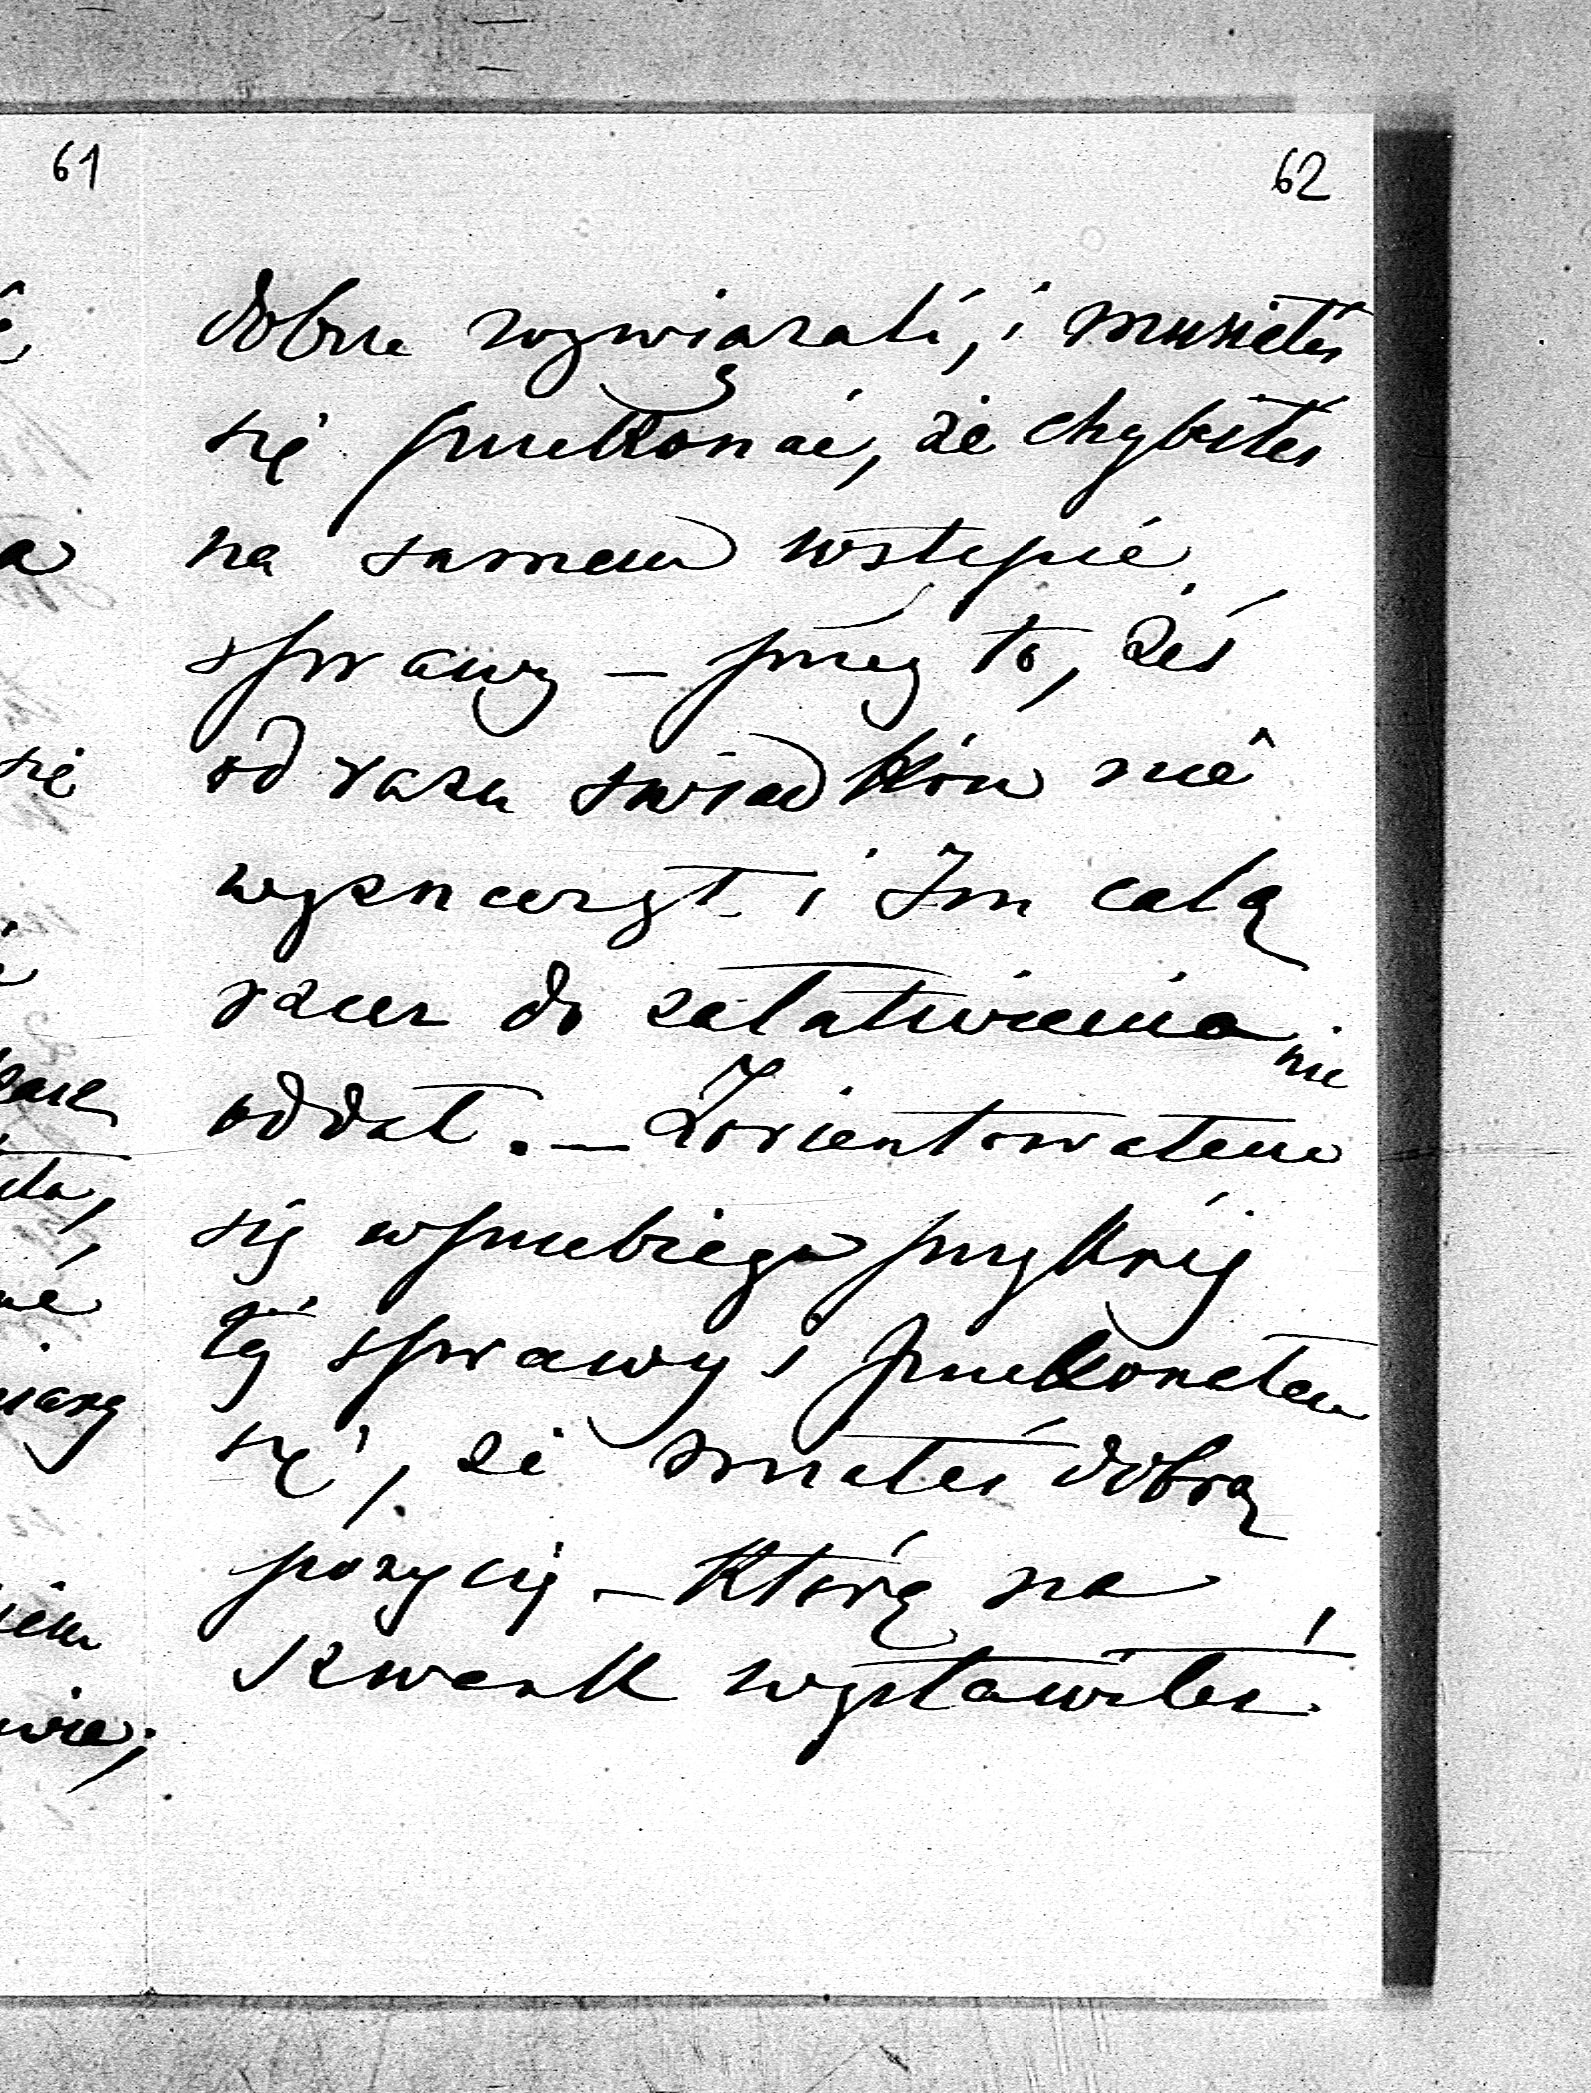 61
62
dobrze rozwiązali, i musiałeś
się przekonać, że chybiłeś
na samem wstępie
sprawy – przez to, żeś
od razu świadków nie
wyznaczył i Im całą
rzecz do załatwienia nie
oddał. – Zorientowałem
się w przebiegu przykréj
téj sprawy i przekonałem
się, że miałeś dobrą
pozycję – którą na
szwank wystawiłeś
się